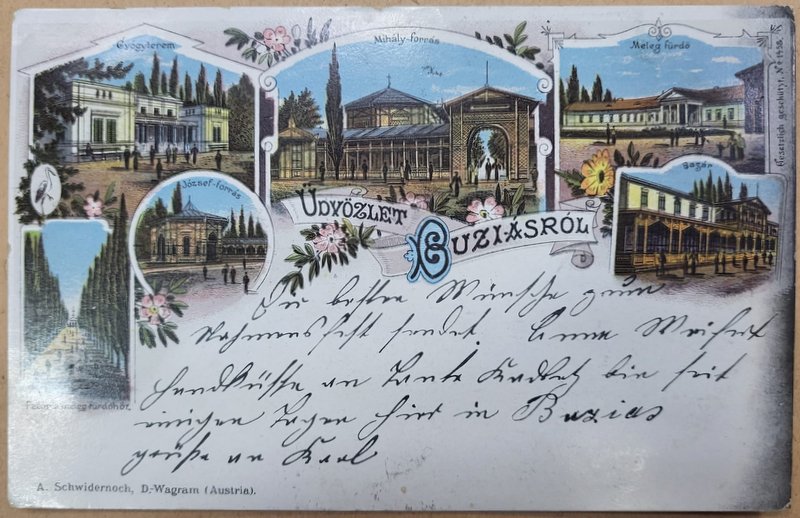 Gyógyterem
Mihály-forrás
Meleg fürdő
Gesetzlich geschützt, No 1438.
József-forrás
Bazár
ÜDVÖZLET
BUZIÁSRÓL
meleg fürdőhöz
Die besten Wünsche zum
Nahmensfest sendet. Anna
Handküsse an Tante bin seit
einigen Tagen hier in Buzias
grüße an Karl
A. Schwidernoch, D.-Wagram (Austria).